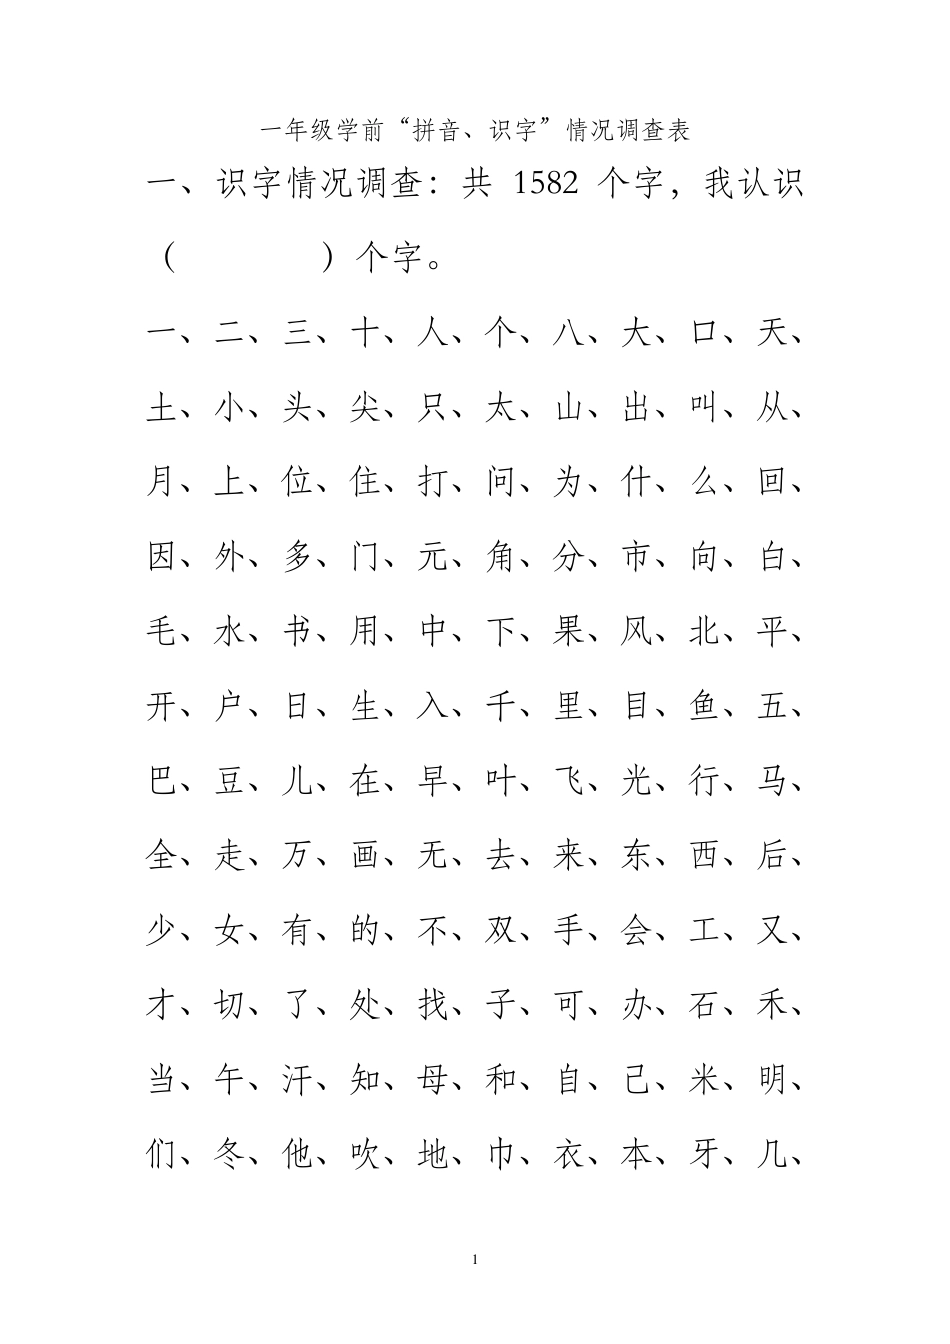 一年级学前“拼音、识字”情况调查表
一、识字情况调查：共 1582 个字，我认识
（　　　　）个字。
一、二、三、十、人、个、八、大、口、天、
土、小、头、尖、只、太、山、出、叫、从、
月、上、位、住、打、问、为、什、么、回、
因、外、多、门、元、角、分、市、向、白、
毛、水、书、用、中、下、果、风、北、平、
开、户、日、生、入、千、里、目、鱼、五、
巴、豆、儿、在、早、叶、飞、光、行、马、
全、走、万、画、无、去、来、东、西、后、
少、女、有、的、不、双、手、会、工、又、
才、切、了、处、找、子、可、办、石、禾、
当、午、汗、知、母、和、自、己、米、明、
们、冬、他、吹、地、巾、衣、本、牙、几、
1